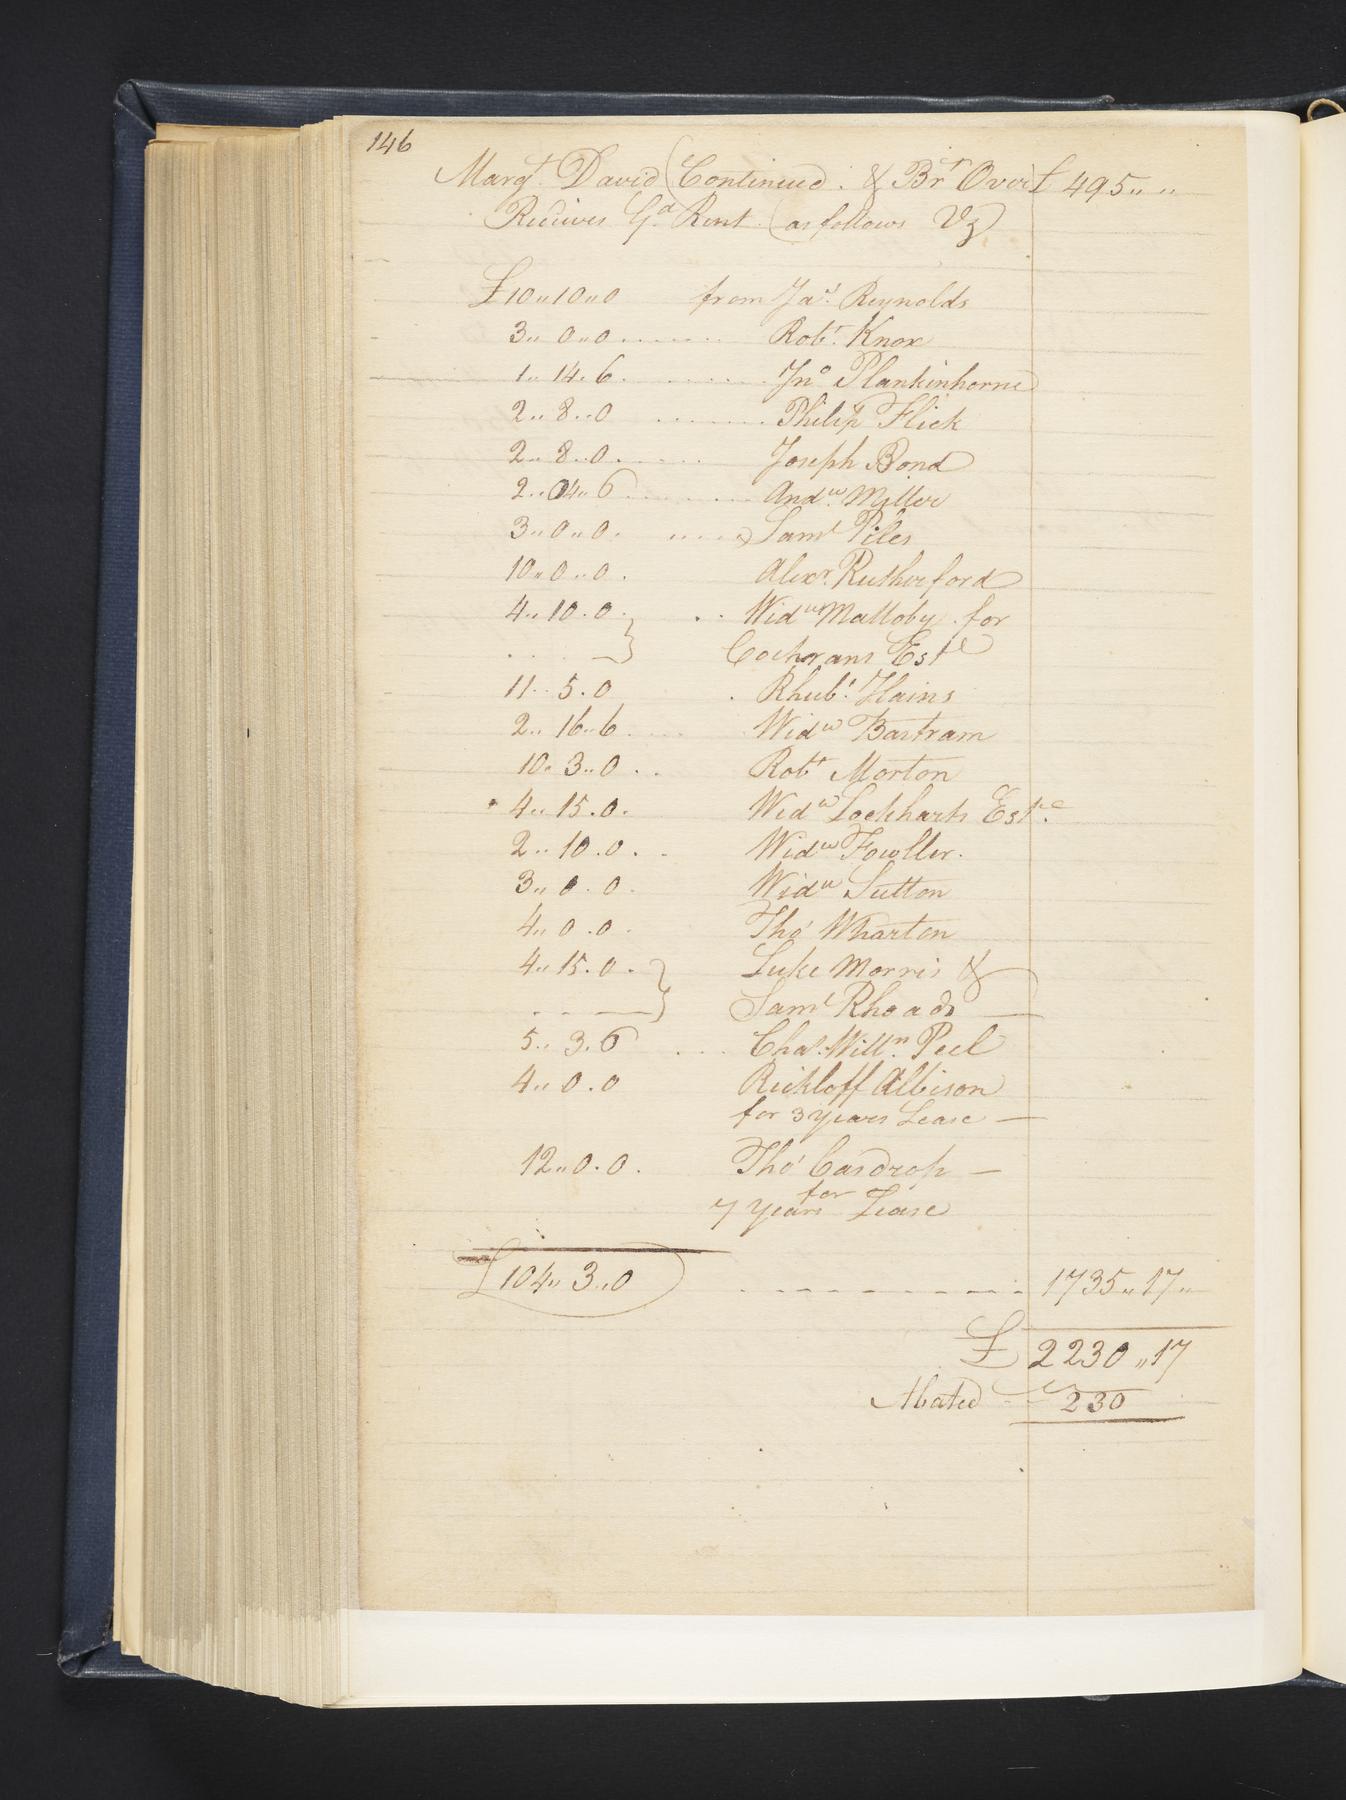 146
Margt. David (Continued. & Br't Over £ 495,, ,,
Recives Gd. Rent (as follows Vz)
£10,,10,,0 from Jas. Reynolds
3,, 0,,0 ....... Robt. Knox
1,, 14. 6. ....... Jno Plankinhorne
2,, 8,,0 ....... Philip Flick
2,, 8,,0 ...... Joseph Bond
2,,04,,6 ........ Andw Miller
3,,0,,0. ..... Saml Piles
10,,0,,0. Alexr. Rutherford
4,,10.0 } .. Widw Malloby for
.... } Cochrans Este
11.. 5.0 . Rhubn. Hains
2,, 16,,6 .... Widw Bartram
10,, 3,,0 .. Robt Morton
4,, 15.0. Widw Lockharts Este.
2,, 10.0.. Widw Fowller.
3,, 0.0. Widw Sutton
4,, 0.0. Tho' Wharton
4,, 15.0. } Luke Morris &
.. — } Saml Rhoads —
5,, 3.6 .... Chas. Willm. Peel
4,, 0.0 Rickloff Albison
for 3 years Lease —
12,,0.0. Tho' Cardrop —
for
7 years Lease
£104,, 3,,0 ......... 1735,,17,,
£ 2230,,17
Abated - - 230